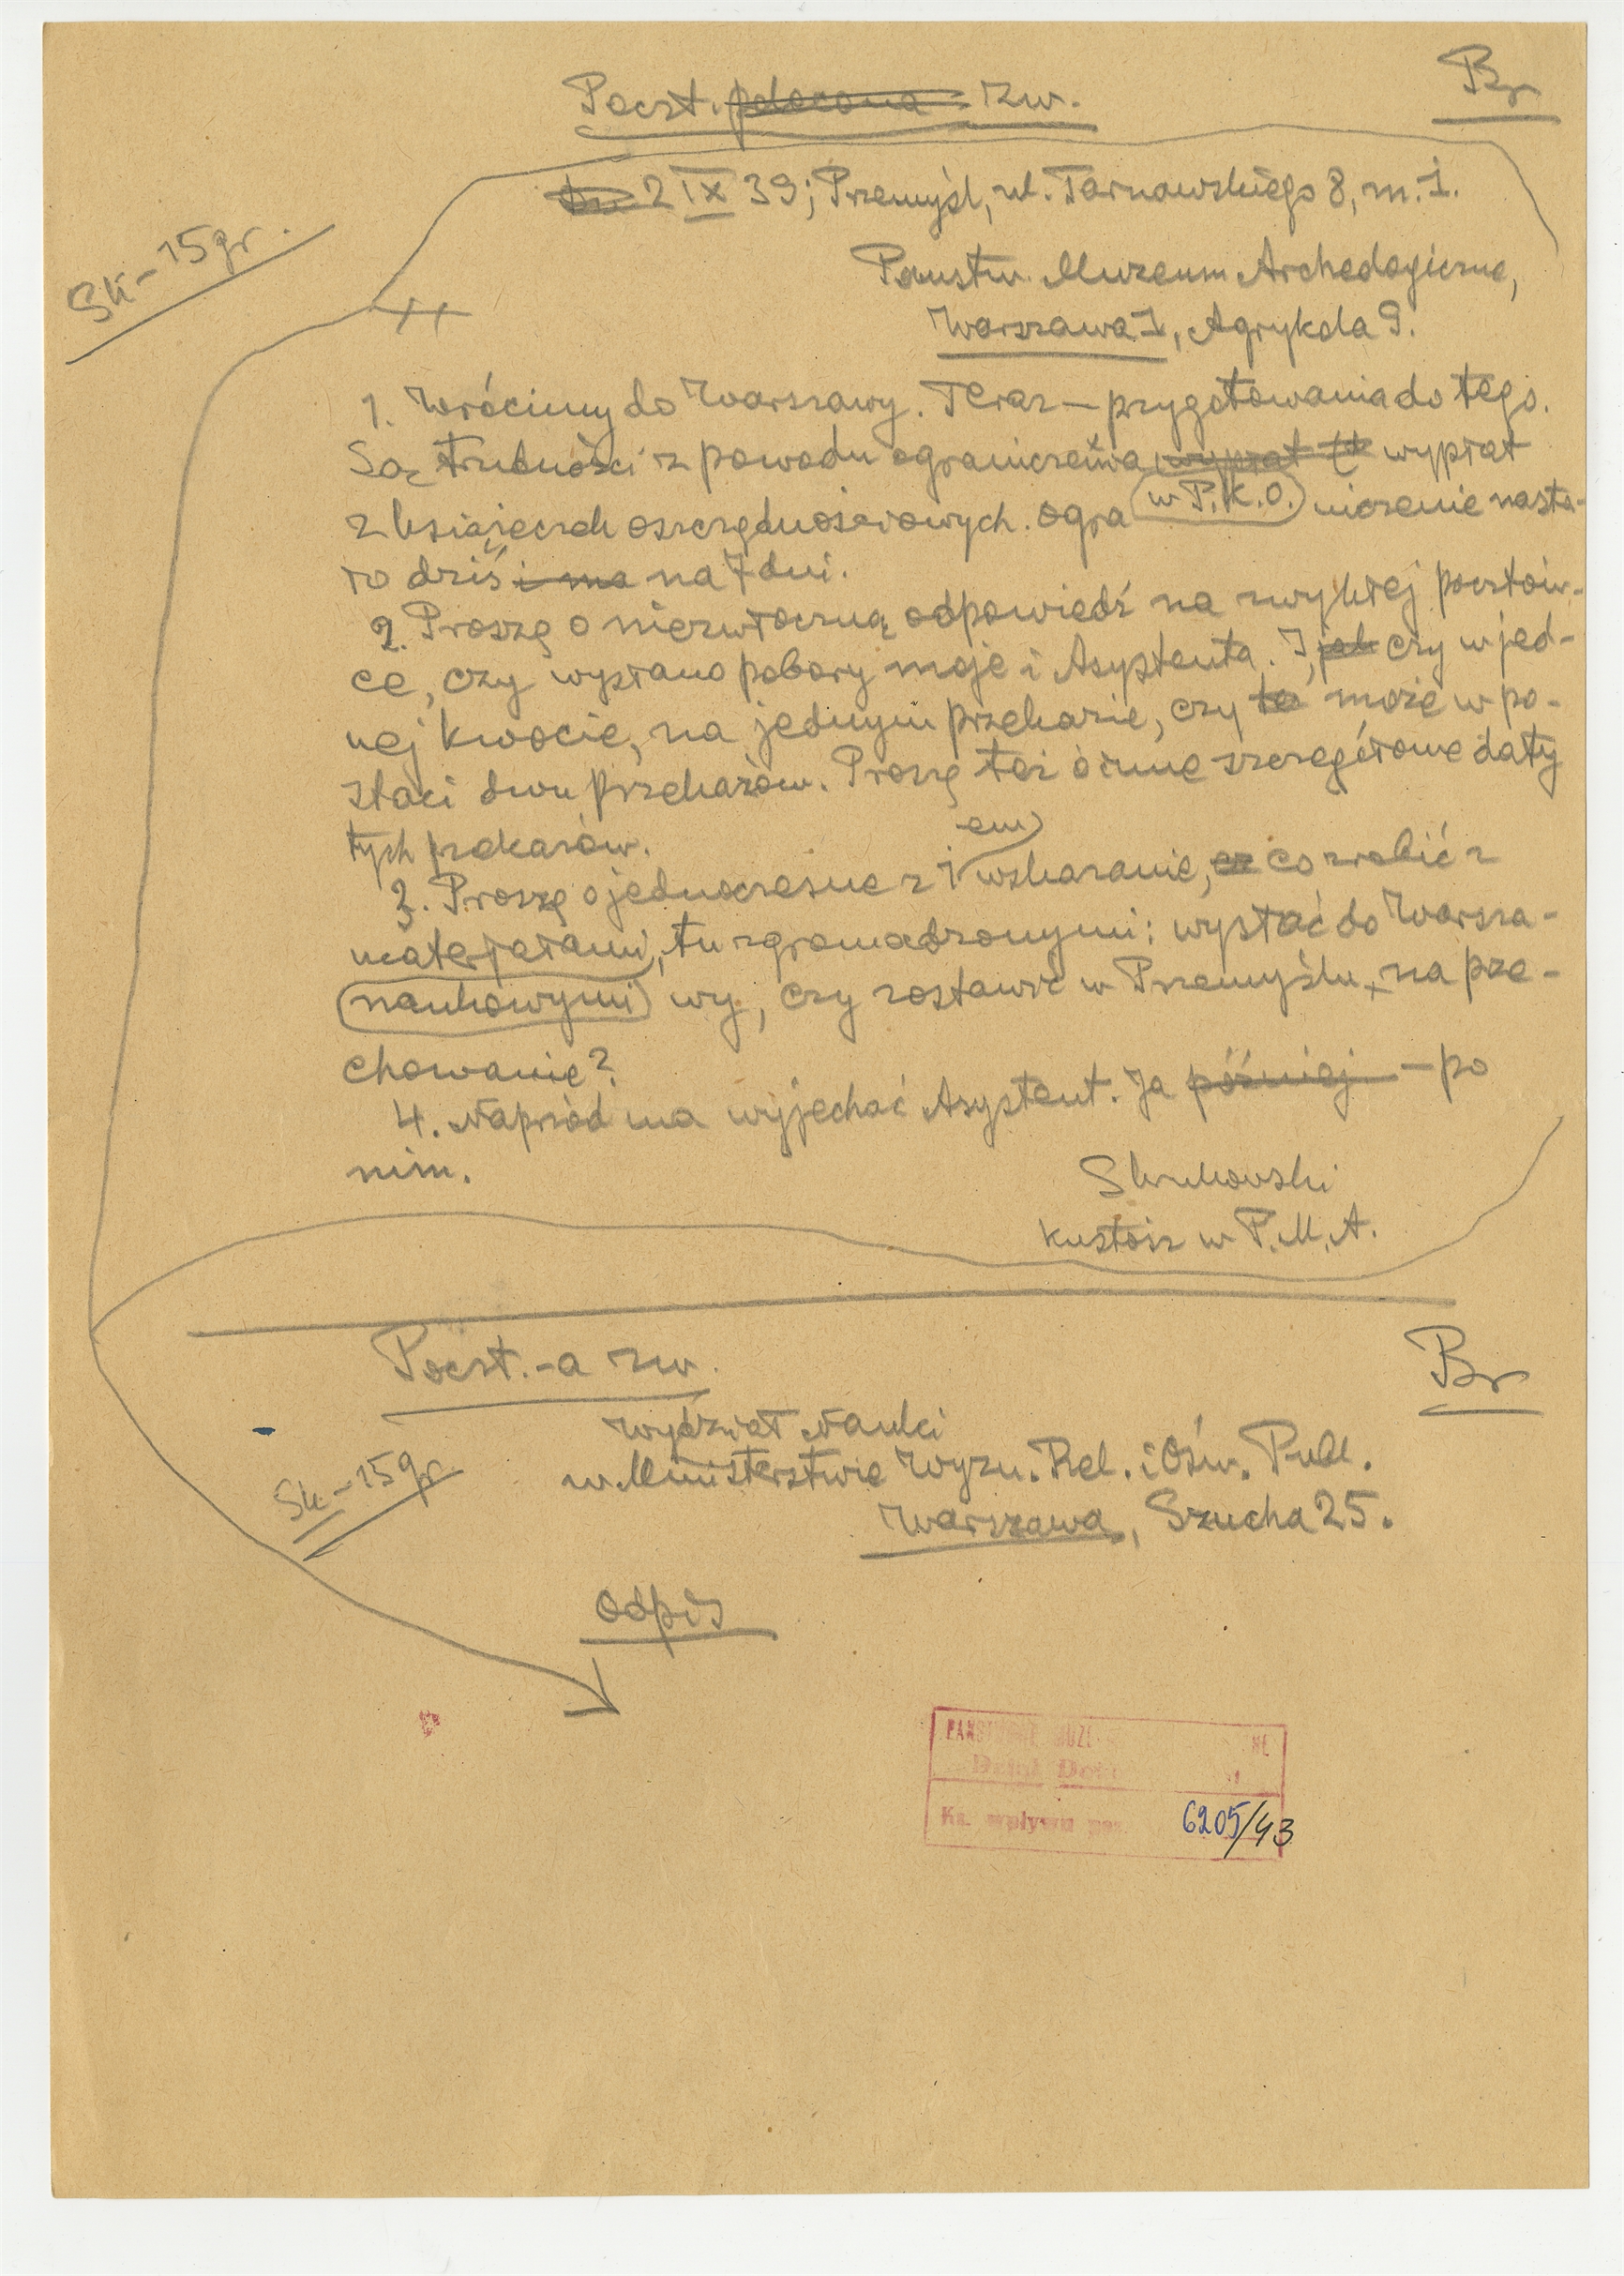 Poczt. polecona zw.
Br
2 IX 39; Przemyśl, ul. Tarnawskiego 8, m. 1.
Sk - 15 gr.
Państw. Muzeum Archeologiczne,
Warszawa 1, Agrykola 9.
1. Wrócimy do Warszawy. Teraz – przygotowania do tego.
Są trudności z powodu ograniczenia wypłat wypłat
z książeczek oszczędnościowych w P.K.O. Ograniczenie nasta-
ło dziś i ma na 7 dni.
2. Proszę o niezwłoczną odpowiedź na zwykłej pocztów-
ce, czy wysłano pobory moje i Asystenta. I, jak czy w jed-
nej kwocie, na jednym przekazie, czy to może w po-
staci dwu przekazów. Proszę też o inne szczegółowe daty
tych przekazów.
3. Proszę o jednoczesne z 1 em wskazanie, cz co zrobić z
materjałami naukowymi, tu zgromadzonymi: wysłać do Warsza-
wy, czy zostawić w Przemyślu, na prze-
chowanie?
4. Naprzód ma wyjechać Asystent. Ja później – po
nim.
Skurkowski
kustosz w P.M.A.
Poczt.-a zw.
Br
Wydział Nauki
w Ministerstwie Wyzn. Rel. i Ośw. Publ.
Sk - 15 gr
Warszawa, Szucha 25.
Odpis
PAŃSTWOWE MUZE NE
Dział Dok
Ks. wpływu poz. 6205/43